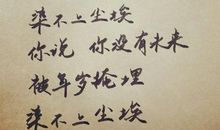 染不上尘埃
你说 你没有未来
被年岁掩埋
染不上尘埃